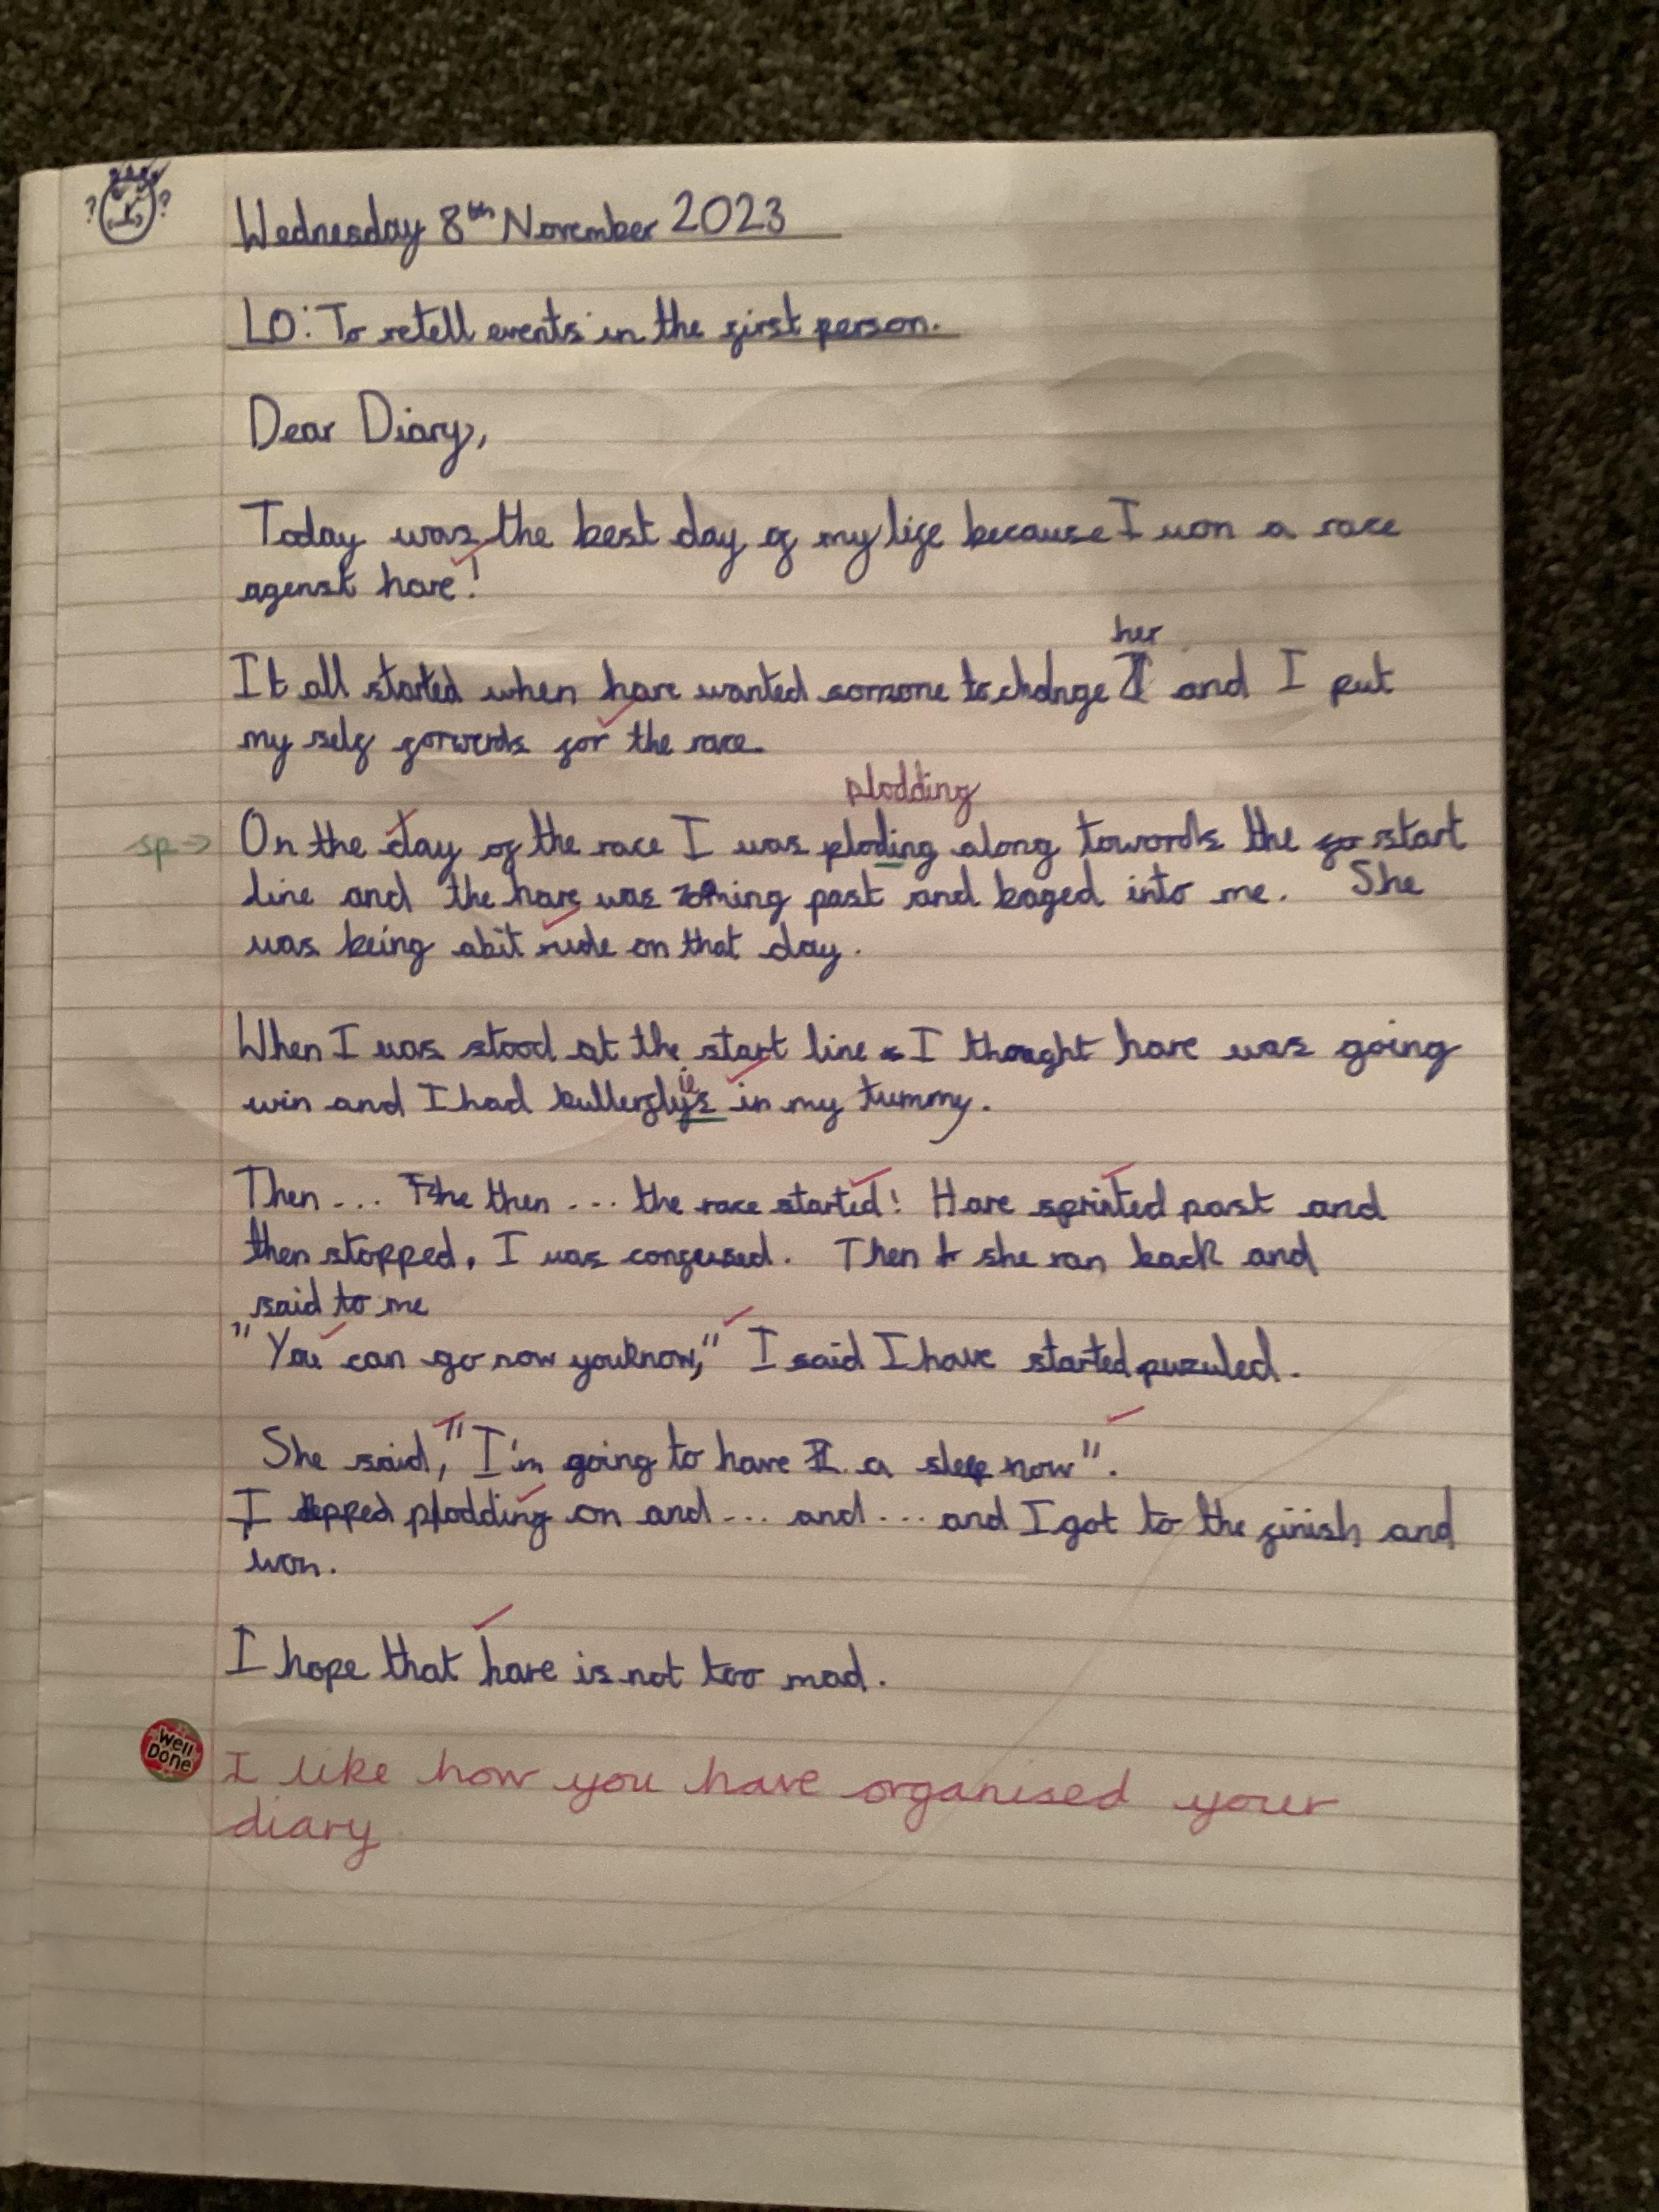 ? ?
Wednesday 8th November 2023
LO: To retell events in the first person.
Dear Diary,
Today was the best day of my life because I won a race
agenst hare!
her
It all started when hare wanted somone to chalnge and I put
my self forwerds for the race.
plodding
sp→ On the day of the race I was ploding along towords the start
line and the hare was zoming past and baged into me. She
was being abit rude on that day.
When I was stood at the start line I thought hare was going
win and I had butterflies in my tummy.
Then... the then... the race started! Hare sprinted past and
then stopped, I was confused. Then she ran back and
said to me
"You can go now youknow," I said I have started puzuled.
She said, "I'm going to have a sleep now".
I plodding on and... and... and I got to the finish and
won.
I hope that hare is not too mad.
Well
Done
I like how you have organised your
diary